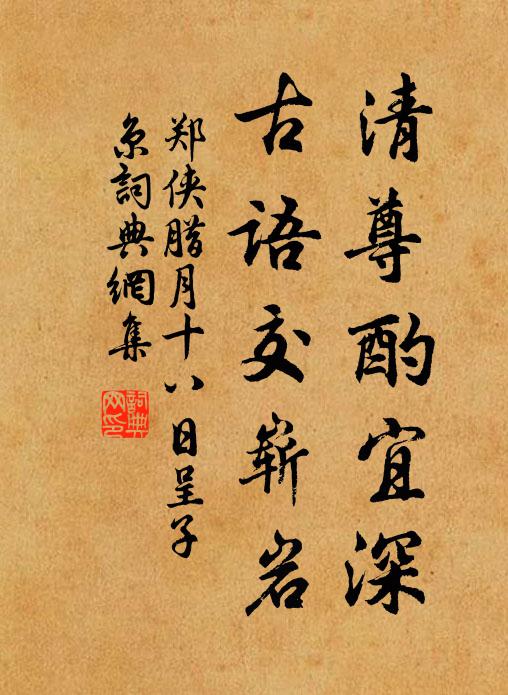 清尊酌宜深
古语交崭岩
郑侠腊月十八日呈子
京詞典網集
詞典
网印